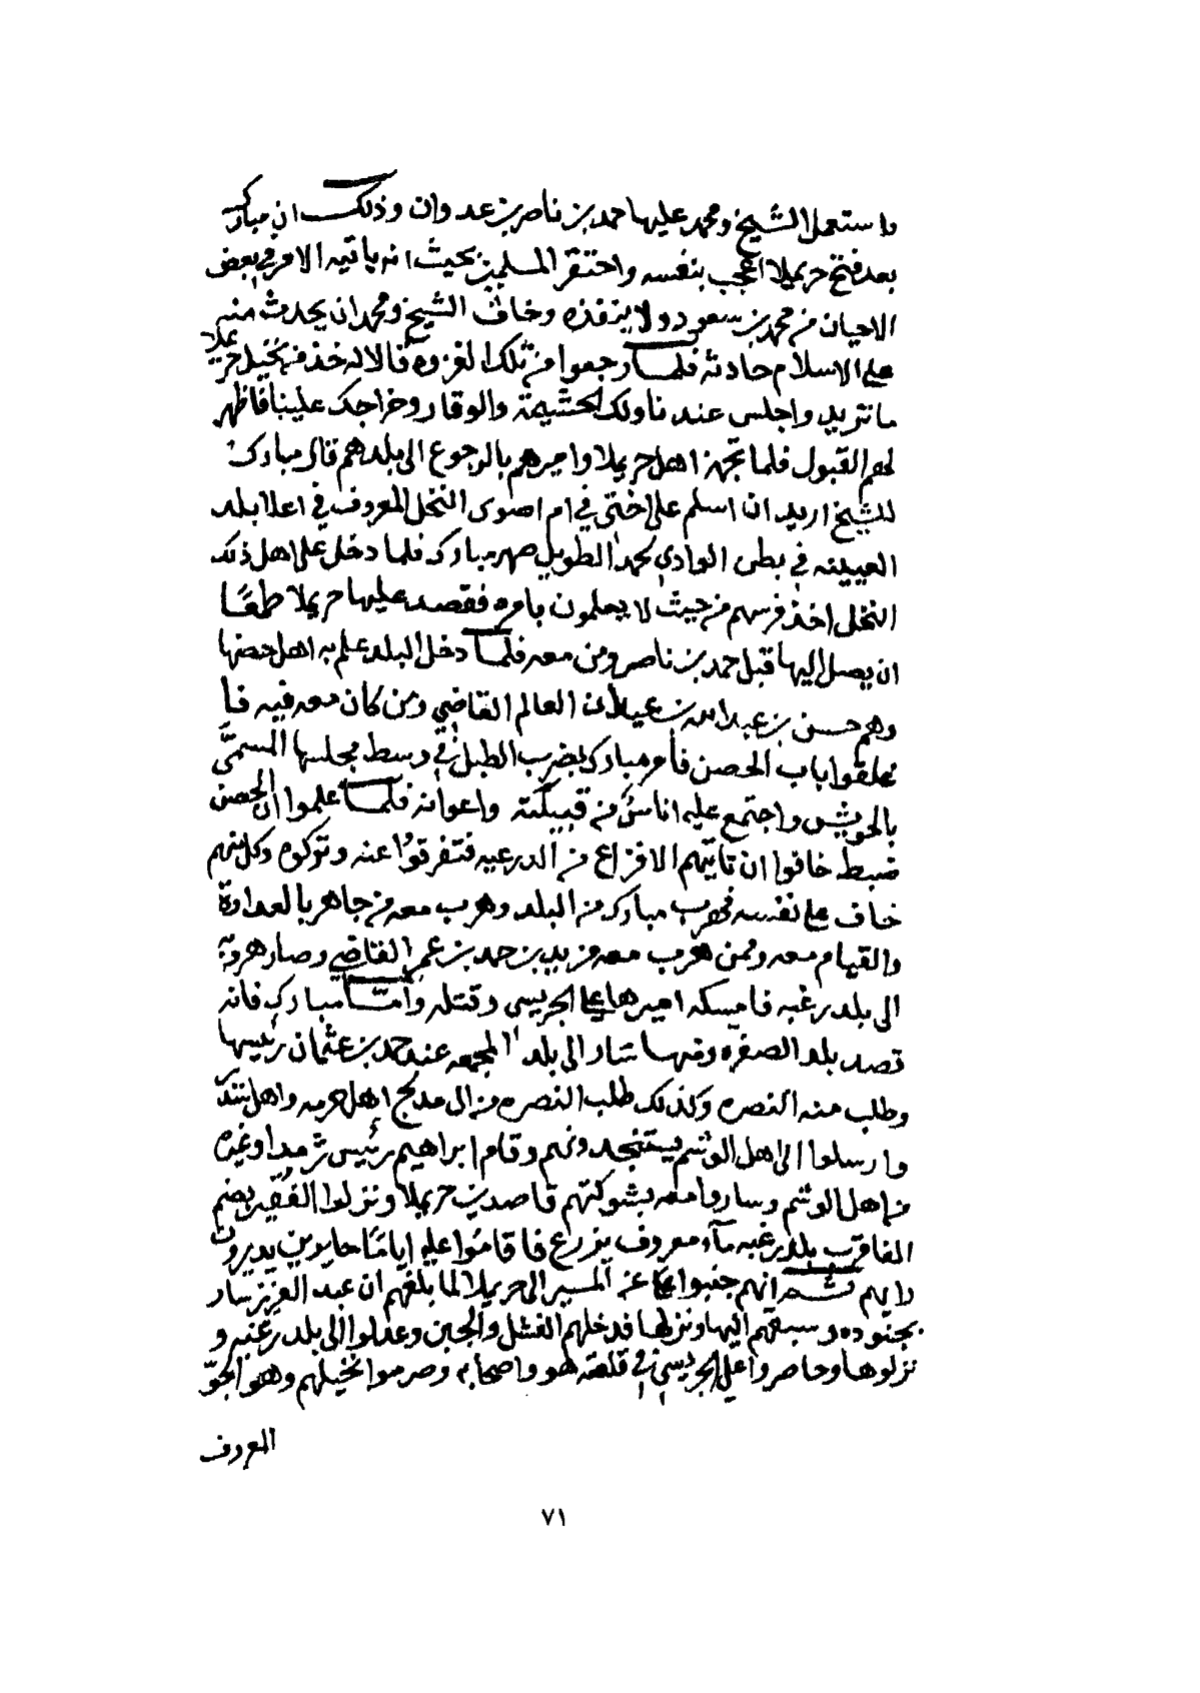 واستعمل الشيخ ومحمد عليها حمد بن ناصر بن عدوان وذلك ان مبارك
بعد فتح حريملا اعجب بنفسه واحتقر المسلمين بحيث انه ياتيه الامر في بعض
الاحيان من محمد بن سعود ولا ينفذه وخاف الشيخ ومحمد ان يحدث منه
على الاسلام حادثه فلما رجعوا من تلك الغزوة قالا له خذ من نخيل حريملا
ما تريد واجلس عندنا ولك الحشيمة والوقار وخراجك علينا فاظهر
لهم القبول فلما تجهز اهل حريملا واميرهم بالرجوع الى بلدهم قال مبارك
للشيخ اريد ان اسلم على اختي في ام اصوى النخل المعروف في اعلا بلد
العيينه في بطن الوادي لمحمد الطويل صهر مبارك فلما دخل على اهل ذلك
النخل اخذ فرسهم من حيث لا يعلمون بامره فقصد عليها حريملا طمعًا
ان يصل اليها قبل حمد بن ناصر ومن معه فلما دخل البلد علم به اهل حصنها
وهم حسن بن عبدالله بن عيدان العالم القاضي ومن كان معه فيه فا
غلقوا باب الحصن فأمر مبارك بضرب الطبل في وسط مجلسها المسمَّى
بالحويش واجتمع عليه اناسٌ من قبيلته واعوانه فلما علموا ان الحصن
ضبط خافوا ان تاتيهم الافزاع من الدرعيه فتفرقوا عنه وتركوه وكل منهم
خاف على نفسه فهرب مبارك من البلد وهرب معه من جاهر بالعداوة
والقيام معه وممن هرب معه مزيد بن حمد بن عمر القاضي وصار هروبه
الى بلد رغبه فامسكه اميرها علي الجريسي وقتله وأمَّا مبارك فانه
قصد بلد الصفره ومنها سار الى بلد المجمعه عند حمد بن عثمان رئيسها
وطلب منه النصره وكذلك طلب النصره من ال مدلج اهل حرمه واهل
وارسلوا الى اهل الوشم يستنجدونهم وقام ابراهيم رئيس ثرمدا وغيره
من اهل الوشم وساروا معه بشوكتهم قاصدين حريملا ونزلوا الفُقَير بضم
الفا قرب بلد رغبه مآء معروف يزرع فاقاموا عليه ايامًا حايرين يديرون
رايهم ثم انهم جنبوا عن المسير الى حريملا لما بلغهم ان عبد العزيز سار
بجنوده وسبقهم اليها ونزلها فدخلهم الفشل والجبن وعدلوا الى بلد رغبه و
نزلوها وحاصروا علي الجريسي في قلعته هو واصحابه وصرموا نخيلهم وهو الجوّ
المعروف
٧١